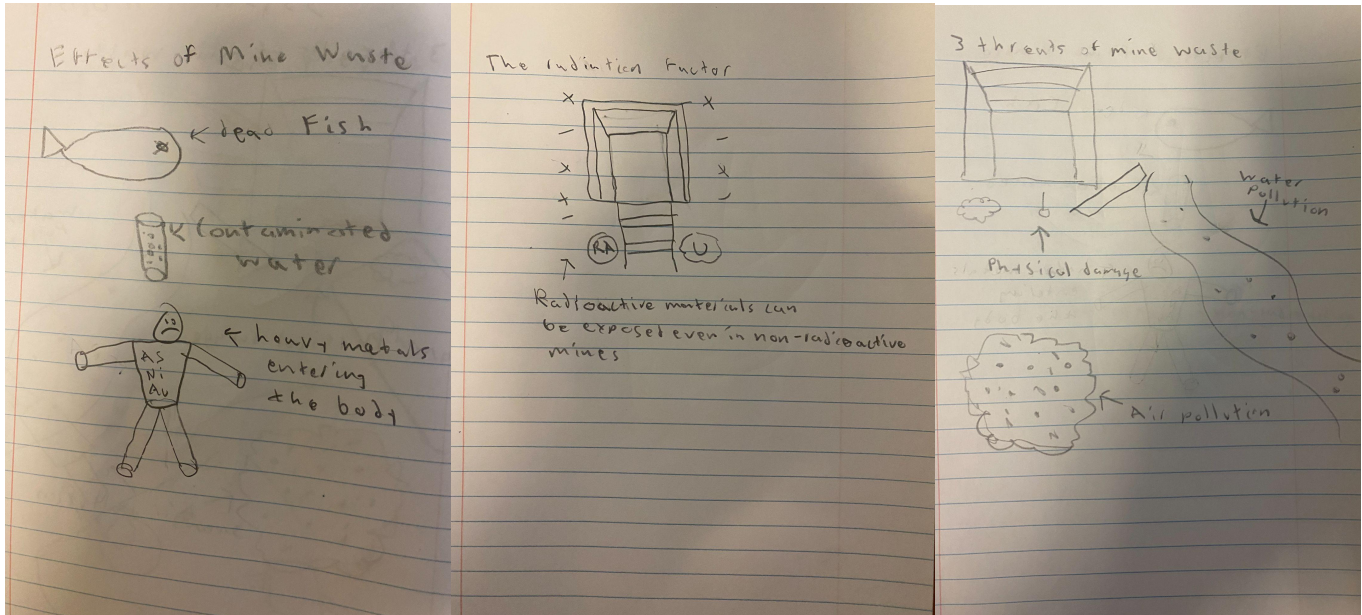 Effects of Mine Waste
dead Fish
Contaminated
water
heavy metals
entering
the body
AS
Ni
Au
The radiation Factor
RA
U
Radioactive materials can
be exposed even in non-radioactive
mines
3 threats of mine waste
Water
Pollution
Physical damage
Air pollution